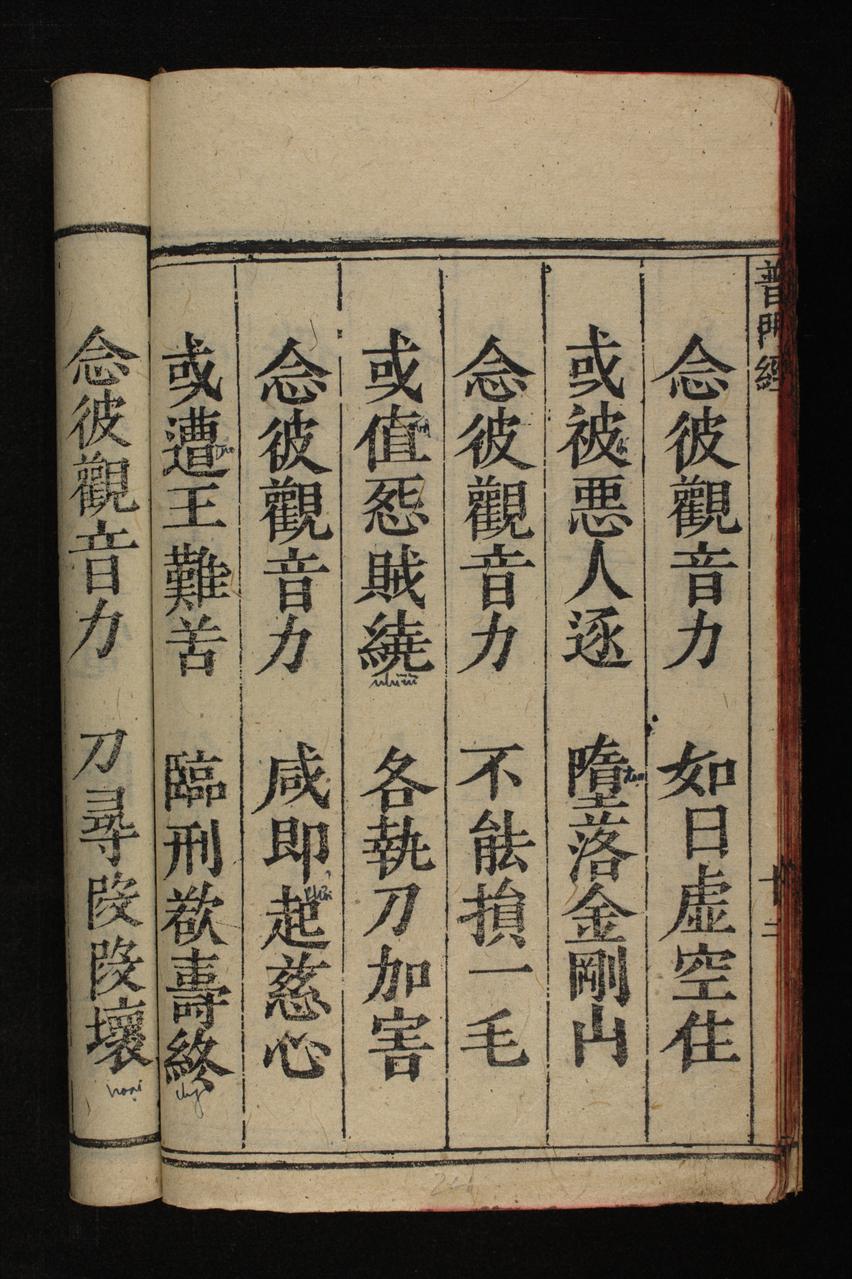 普門經
念彼觀音力 如日虛空住
或被惡人逐 墮落金剛山
念彼觀音力 不能損一毛
或值怨賊繞 各執刀加害
nhiễu
念彼觀音力 咸即起慈心
或遭王難苦 臨刑欲壽終
念彼觀音力 刀尋段段壞
hoại